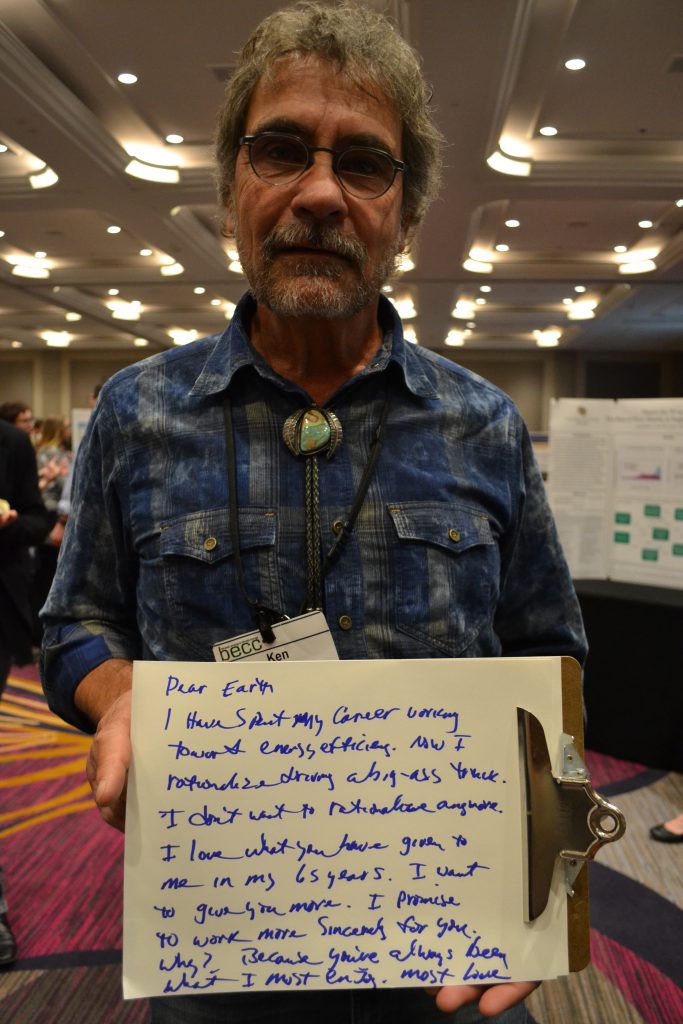 becc
Ken
Dear Earth
I Have Spent my Career working
toward energy efficiency. Now I
rationalize driving a big-ass truck.
I don't want to rationalize anymore.
I love what you have given to
me in my 65 years. I want
to give you more. I Promise
to work more Sincerely for you.
Why? Because you've always been
what I most enjoy. most love